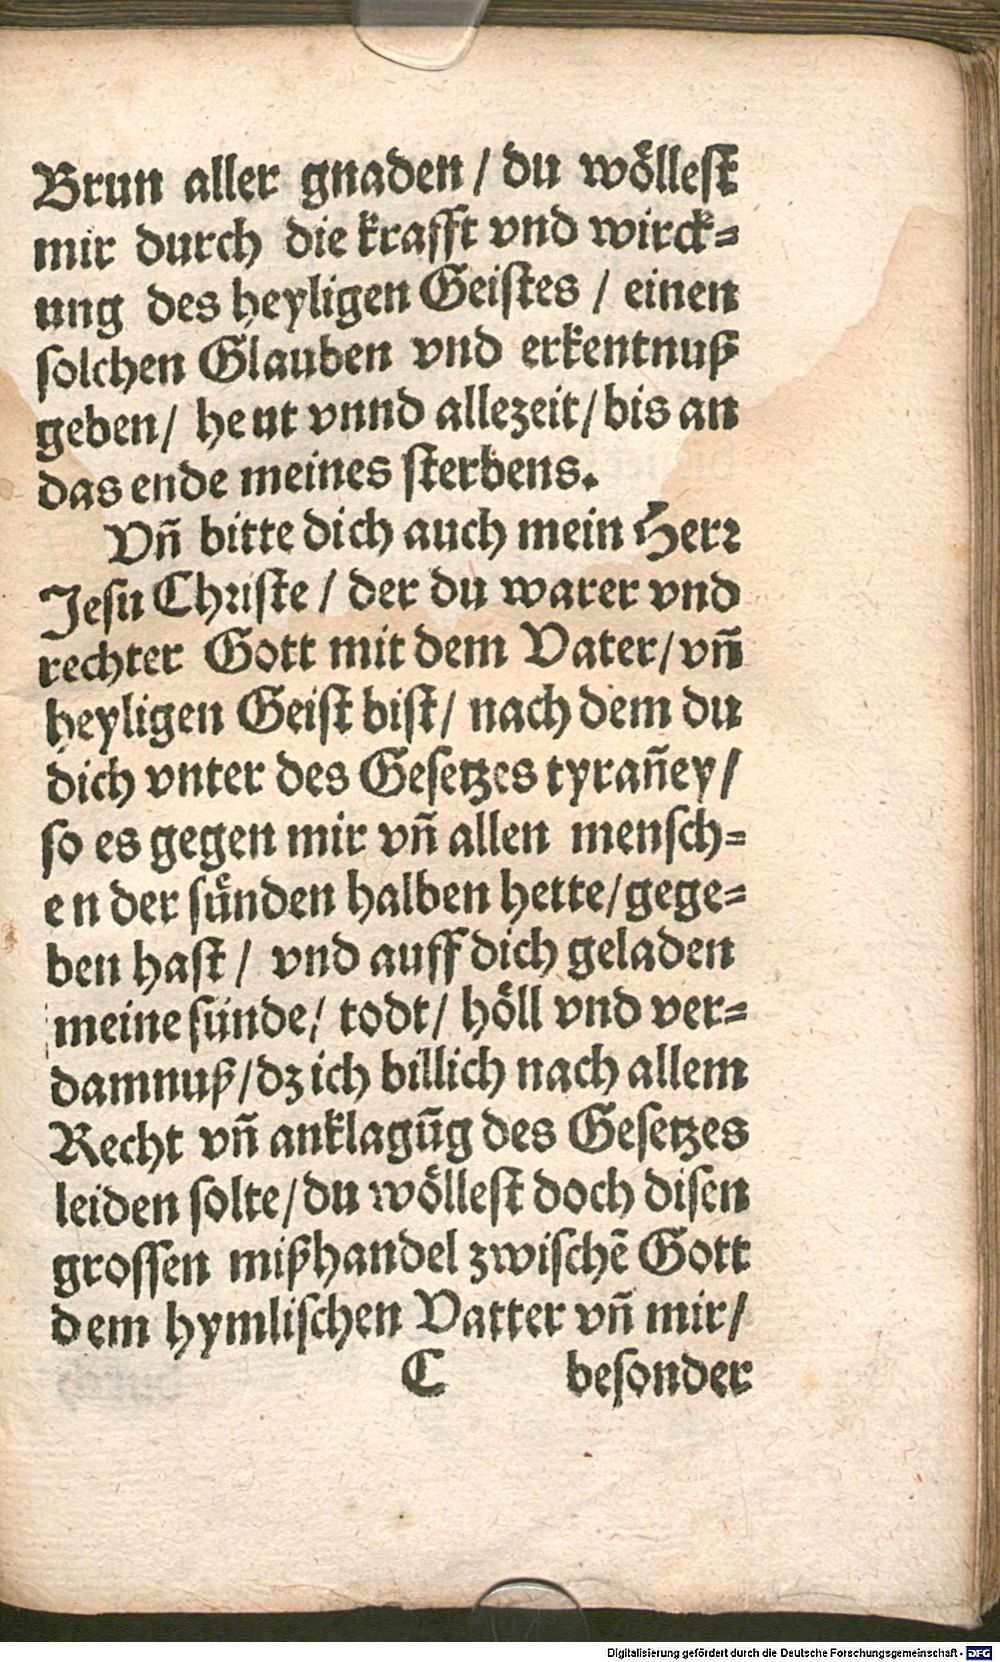 Brun aller gnaden / du wöllest
mir durch die krafft vnd wirck⸗
ung des heyligen Geistes / einen
solchen Glauben vnd erkentnuß
geben / heut vnnd allezeit / bis an
das ende meines sterbens.
Vñ bitte dich auch mein Herr
Jesu Christe / der du warer vnd
rechter Gott mit dem Vater / vñ
heyligen Geist bist / nach dem du
dich vnter des Gesetzes tyrañey /
so es gegen mir vñ allen mensch⸗
en der sünden halben hette / gege⸗
ben hast / vnd auff dich geladen
meine sünde / todt / höll vnd ver⸗
damnuß / dz ich billich nach allem
Recht vñ anklagũg des Gesetzes
leiden solte / du wöllest doch disen
grossen mißhandel zwischẽ Gott
dem hymlischen Vatter vñ mir /
C besonder
Digitalisierung gefördert durch die Deutsche Forschungsgemeinschaft - DFG